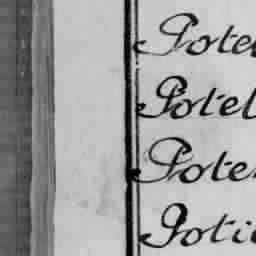 Pote
Potel
Pote
Poti